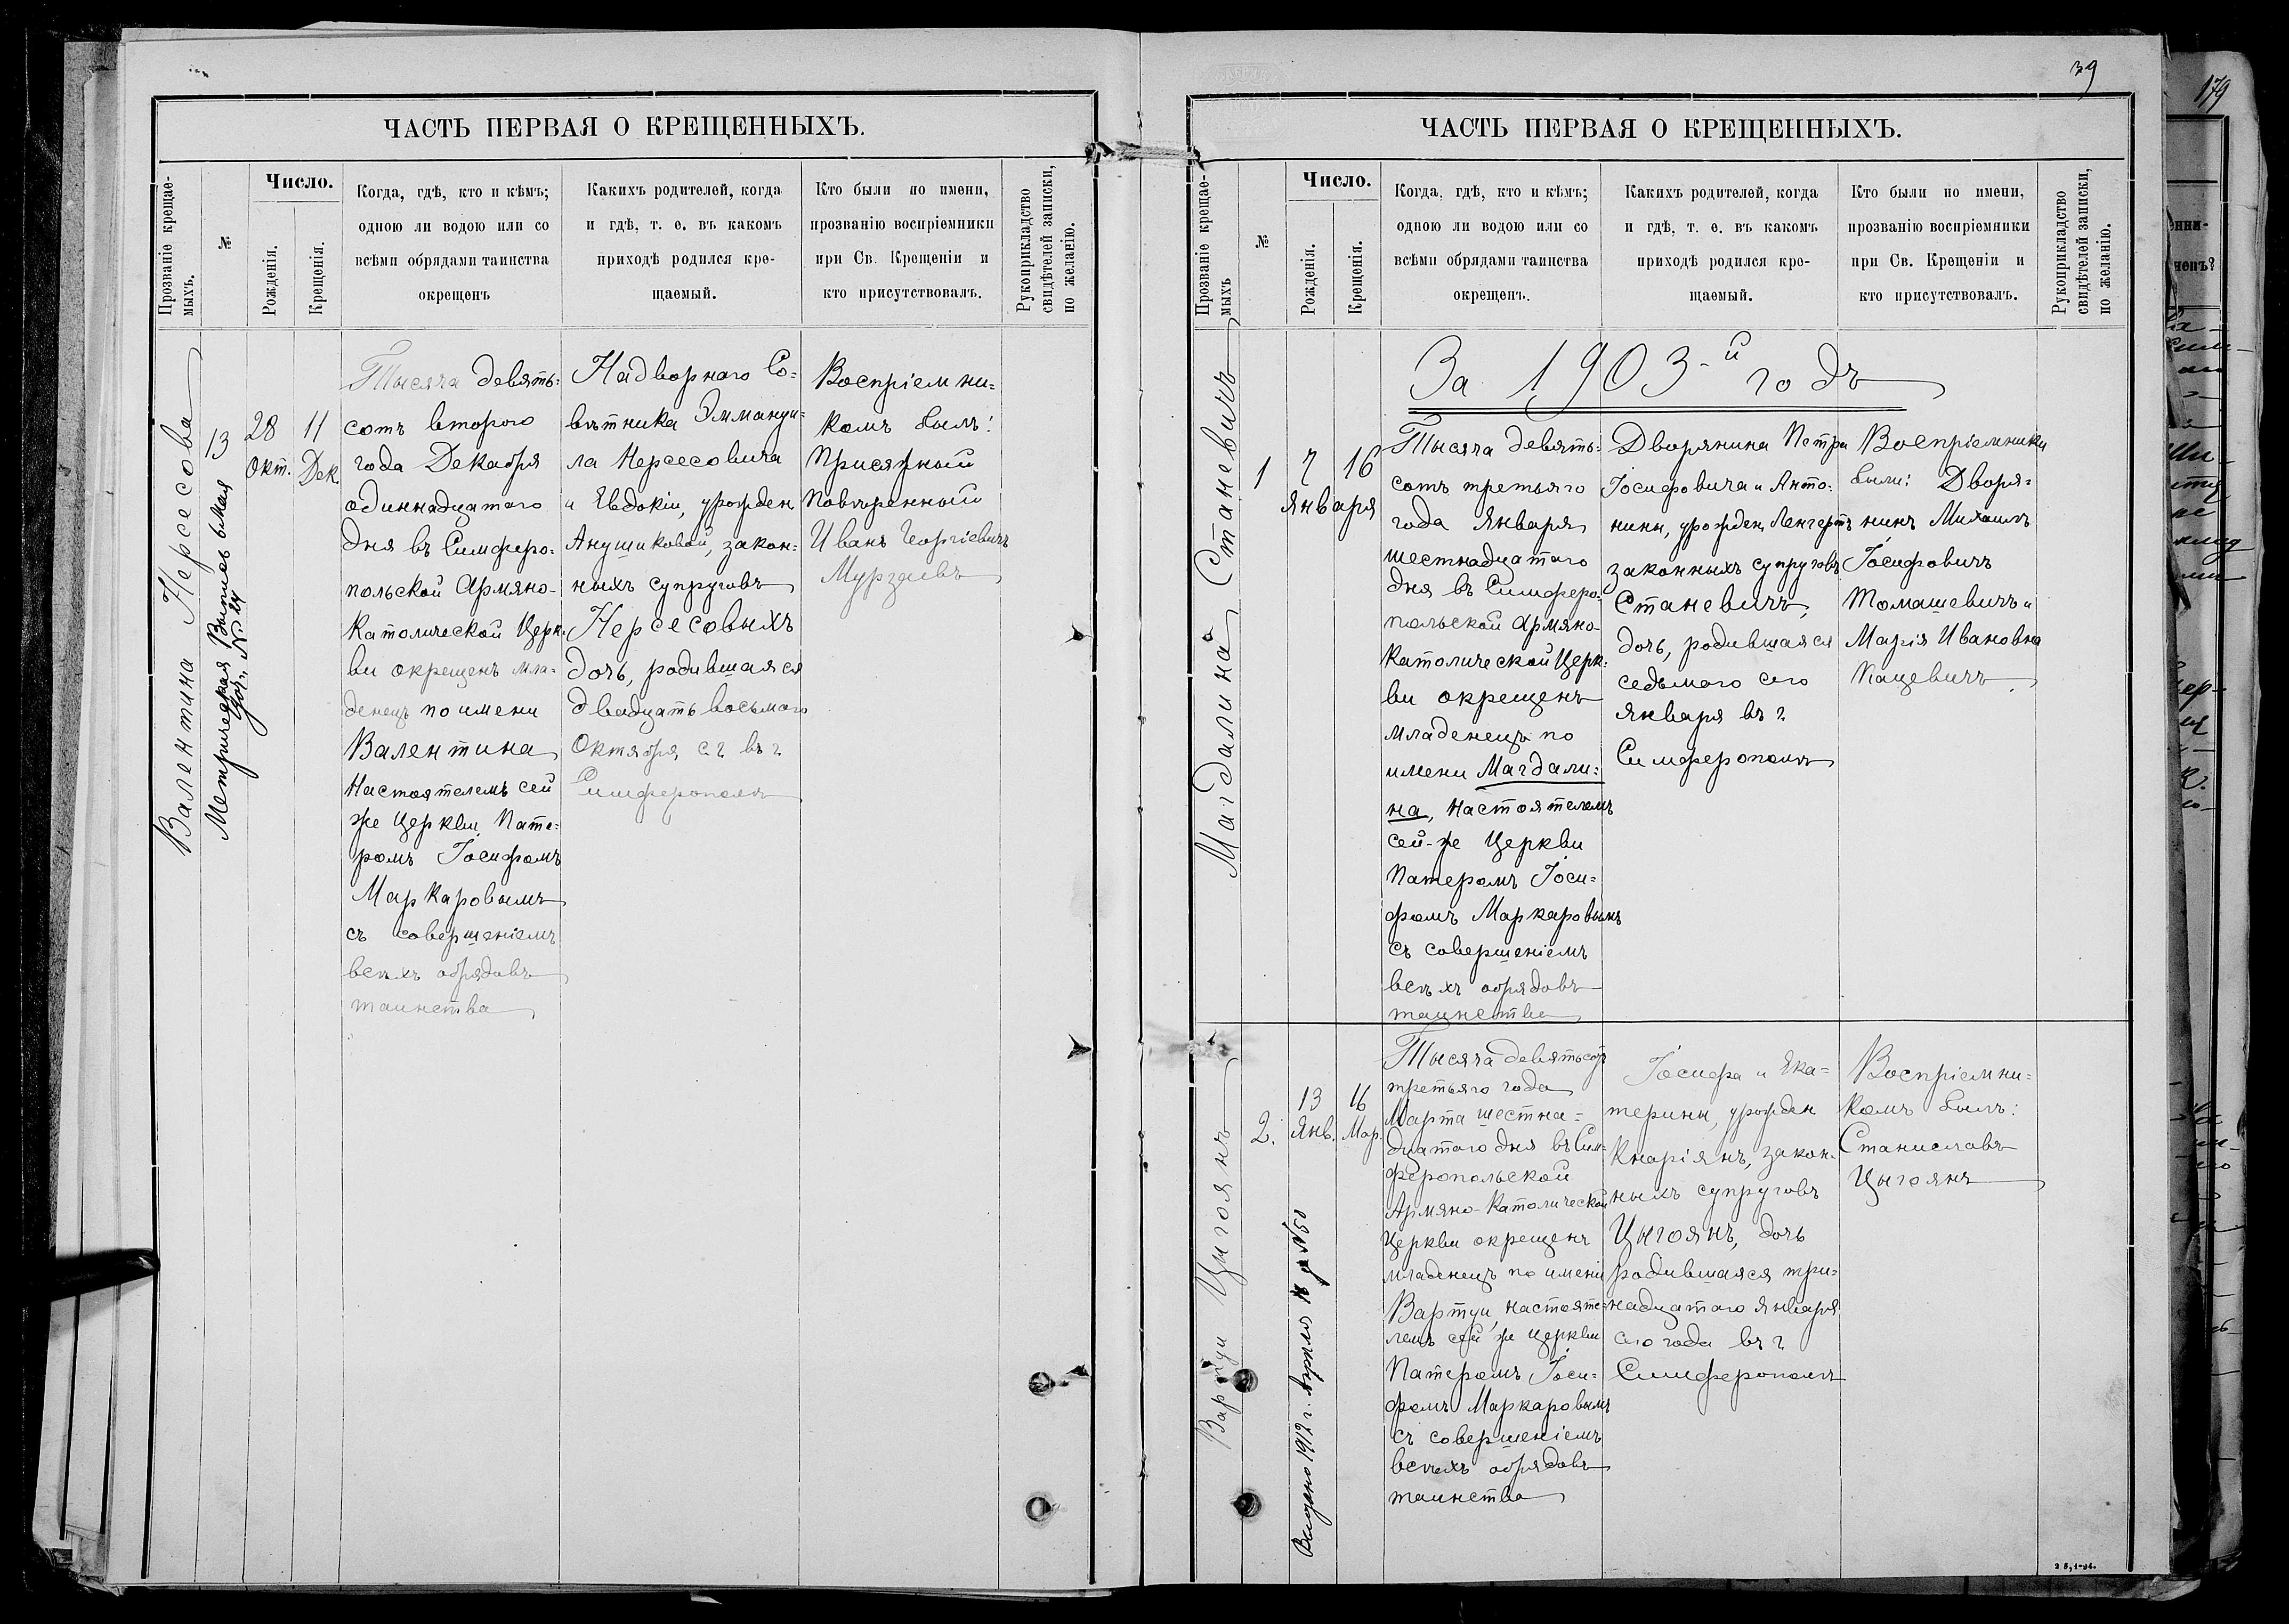 ЧАСТЬ ПЕРВАЯ О КРЕЩЕННЫХЪ.
Прозваніе крещае-
мыхъ.
№
Число.
Рожденія.
Крещенія.
Когда, гдѣ, кто и кѣмъ;
одною ли водою или со
всѣми обрядами таинства
окрещенъ
Какихъ родителей, когда
и гдѣ, т. е. въ какомъ
приходѣ родился кре-
щаемый.
Кто были по имени,
прозванію воспріемники
при Св. Крещеніи и
кто присутствовалъ.
Рукоприкладство
свидѣтелей записки,
по желанію.
Валентина Нерсесова
13
Метрическая
№ 24
28
Окт.
11
Дек.
Тысяча девять=
сотъ второго
года Декабря
одиннадцатого
дня въ Симферо-
польской Армяно-
Католической Церк-
ви окрещенъ мла-
денецъ по имени
Валентина
Настоятелемъ сей
же Церкви, Пате=
ромъ Іосифомъ
Маркаровымъ
съ совершеніемъ
всѣхъ обрядовъ
таинства
Надворнаго Со=
вѣтника Эммануи=
ла Нерсесовича
и Евдокіи, урожден
Анушиковой, закон=
ныхъ супруговъ
Нерсесовыхъ
дочь, родившаяся
двадцать восьмого
Октября с г въ г
Симферополѣ
Воспріемни=
комъ былъ:
Присяжный
Повѣренный
Иванъ Георгіевичъ
Мурзаевъ
39
ЧАСТЬ ПЕРВАЯ О КРЕЩЕННЫХЪ.
Прозваніе крещае-
мыхъ
№
Число.
Рожденія.
Крещенія.
Когда, гдѣ, кто и кѣмъ;
одною ли водою или со
всѣми обрядами таинства
окрещенъ.
Какихъ родителей, когда
и гдѣ, т. е. въ какомъ
приходѣ родился кре-
щаемый.
Кто были по имени,
прозванію воспріемники
при Св. Крещеніи и
кто присутствовалъ.
Рукоприкладство
свидѣтелей записки,
по желанію.
За 1903-й годъ
Магдалина Станевичъ
1
7
16
Января
Тысяча девять=
сотъ третьяго
года Января
шестнадцатого
дня въ Симферо-
польской Армяно-
Католической Церк-
ви окрещенъ
младенецъ по
имени Магдали=
на, Настоятелемъ
сей-же Церкви
Патеромъ Іоси=
фомъ Маркаровымъ
съ совершеніемъ
всѣхъ обрядовъ
таинства
Дворянина Петра
Іосифовича и Анто-
нины, урожден Ленгертъ
законныхъ супруговъ
Станевичъ,
дочь, родившаяся
седьмого сего
Января въ г.
Симферополѣ
Воспріемники
были: Дворя=
нинъ Михаилъ
Іосифовичъ
Томашевичъ и
Марія Ивановна
Пацевичъ
Вартуи Цигоянъ
2.
13
Янв.
16
Мар.
Выдано 1912 г. Апреля 16 № 50
Тысяча девятьсотъ
третьяго года
Марта шестна=
дцатого дня въ Сим-
феропольской
Армяно-Католической
Церкви окрещенъ
младенецъ по имени
Вартуи, настояте=
лемъ сей же церкви
Патеромъ Іоси=
фомъ Маркаровымъ
съ совершеніемъ
всѣхъ обрядовъ
таинства
Іосифа и Ека=
терины, урожден
Кнаріянъ, закон-
ныхъ супруговъ
Цыгоянъ, дочь
родившаяся три=
надцатого Января
сего года въ г
Симферополѣ
Воспріемни=
комъ былъ:
Станиславъ
Цыгоянъ
179